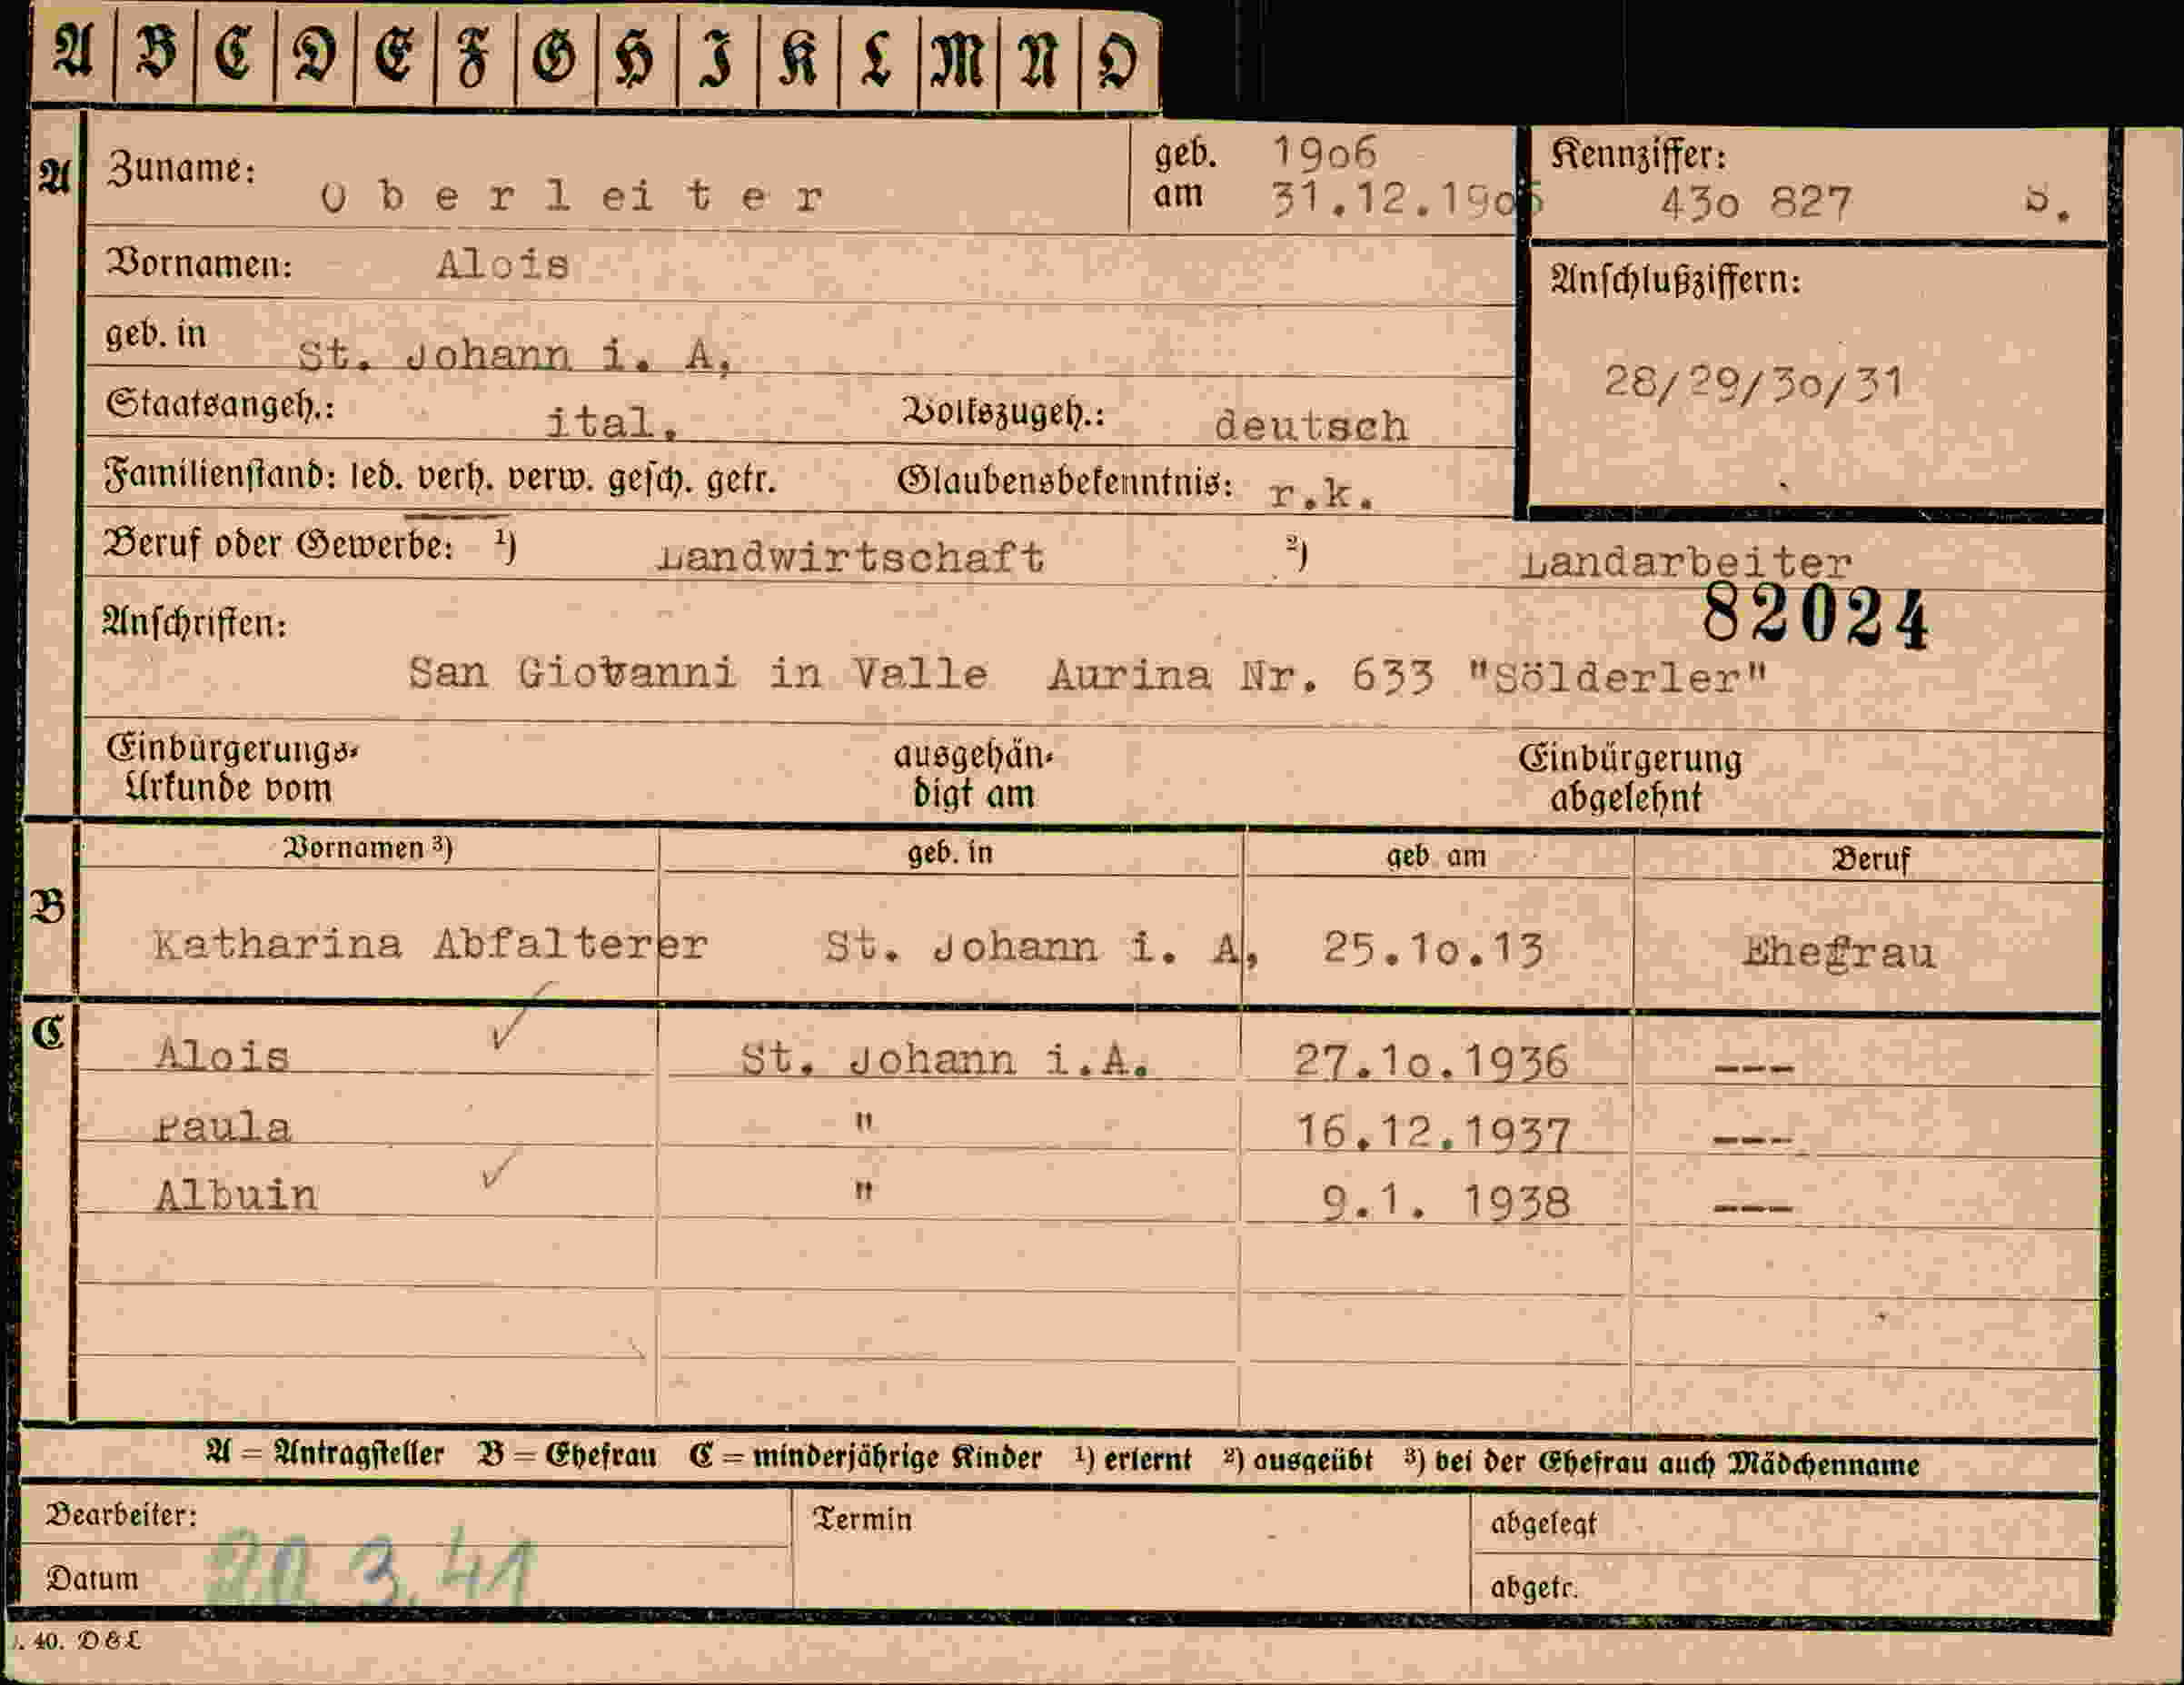 A B C D E F G H I K L M N O
A Zuname: O b e r l e i t e r geb. am 1906 31.12.1905 Kennziffer: 430 827 S.
Vornamen: Alois
Anschlußziffern:
geb. in St. Johann i. A,
28/29/30/31
Staatsangeh.: ital. Volkszugeh.: deutsch
Familienstand: led. verh. verw. gesch. getr. Glaubensbekenntnis: r.k.
Beruf oder Gewerbe: ¹) Landwirtschaft ²) Landarbeiter
82024
Anschriften:
San Giovanni in Valle Aurina Nr. 633 "Sölderler"
Einbürgerungs- ausgehän- Einbürgerung
Urkunde vom digt am abgelehnt
Vornamen ³) geb. in geb am Beruf
B Katharina Abfalterer St. Johann i. A, 25.10.13 Ehefrau
C Alois ✓ St. Johann i.A. 27.10.1936 ---
Paula " 16.12.1937 ---
Albuin ✓ " 9.1. 1938 ---
A = Antragsteller B = Ehefrau C = minderjährige Kinder ¹) erlernt ²) ausgeübt ³) bei der Ehefrau auch Mädchenname
Bearbeiter: Termin abgelegt
Datum 20 3. 41 abgetr.
. 40. D & L